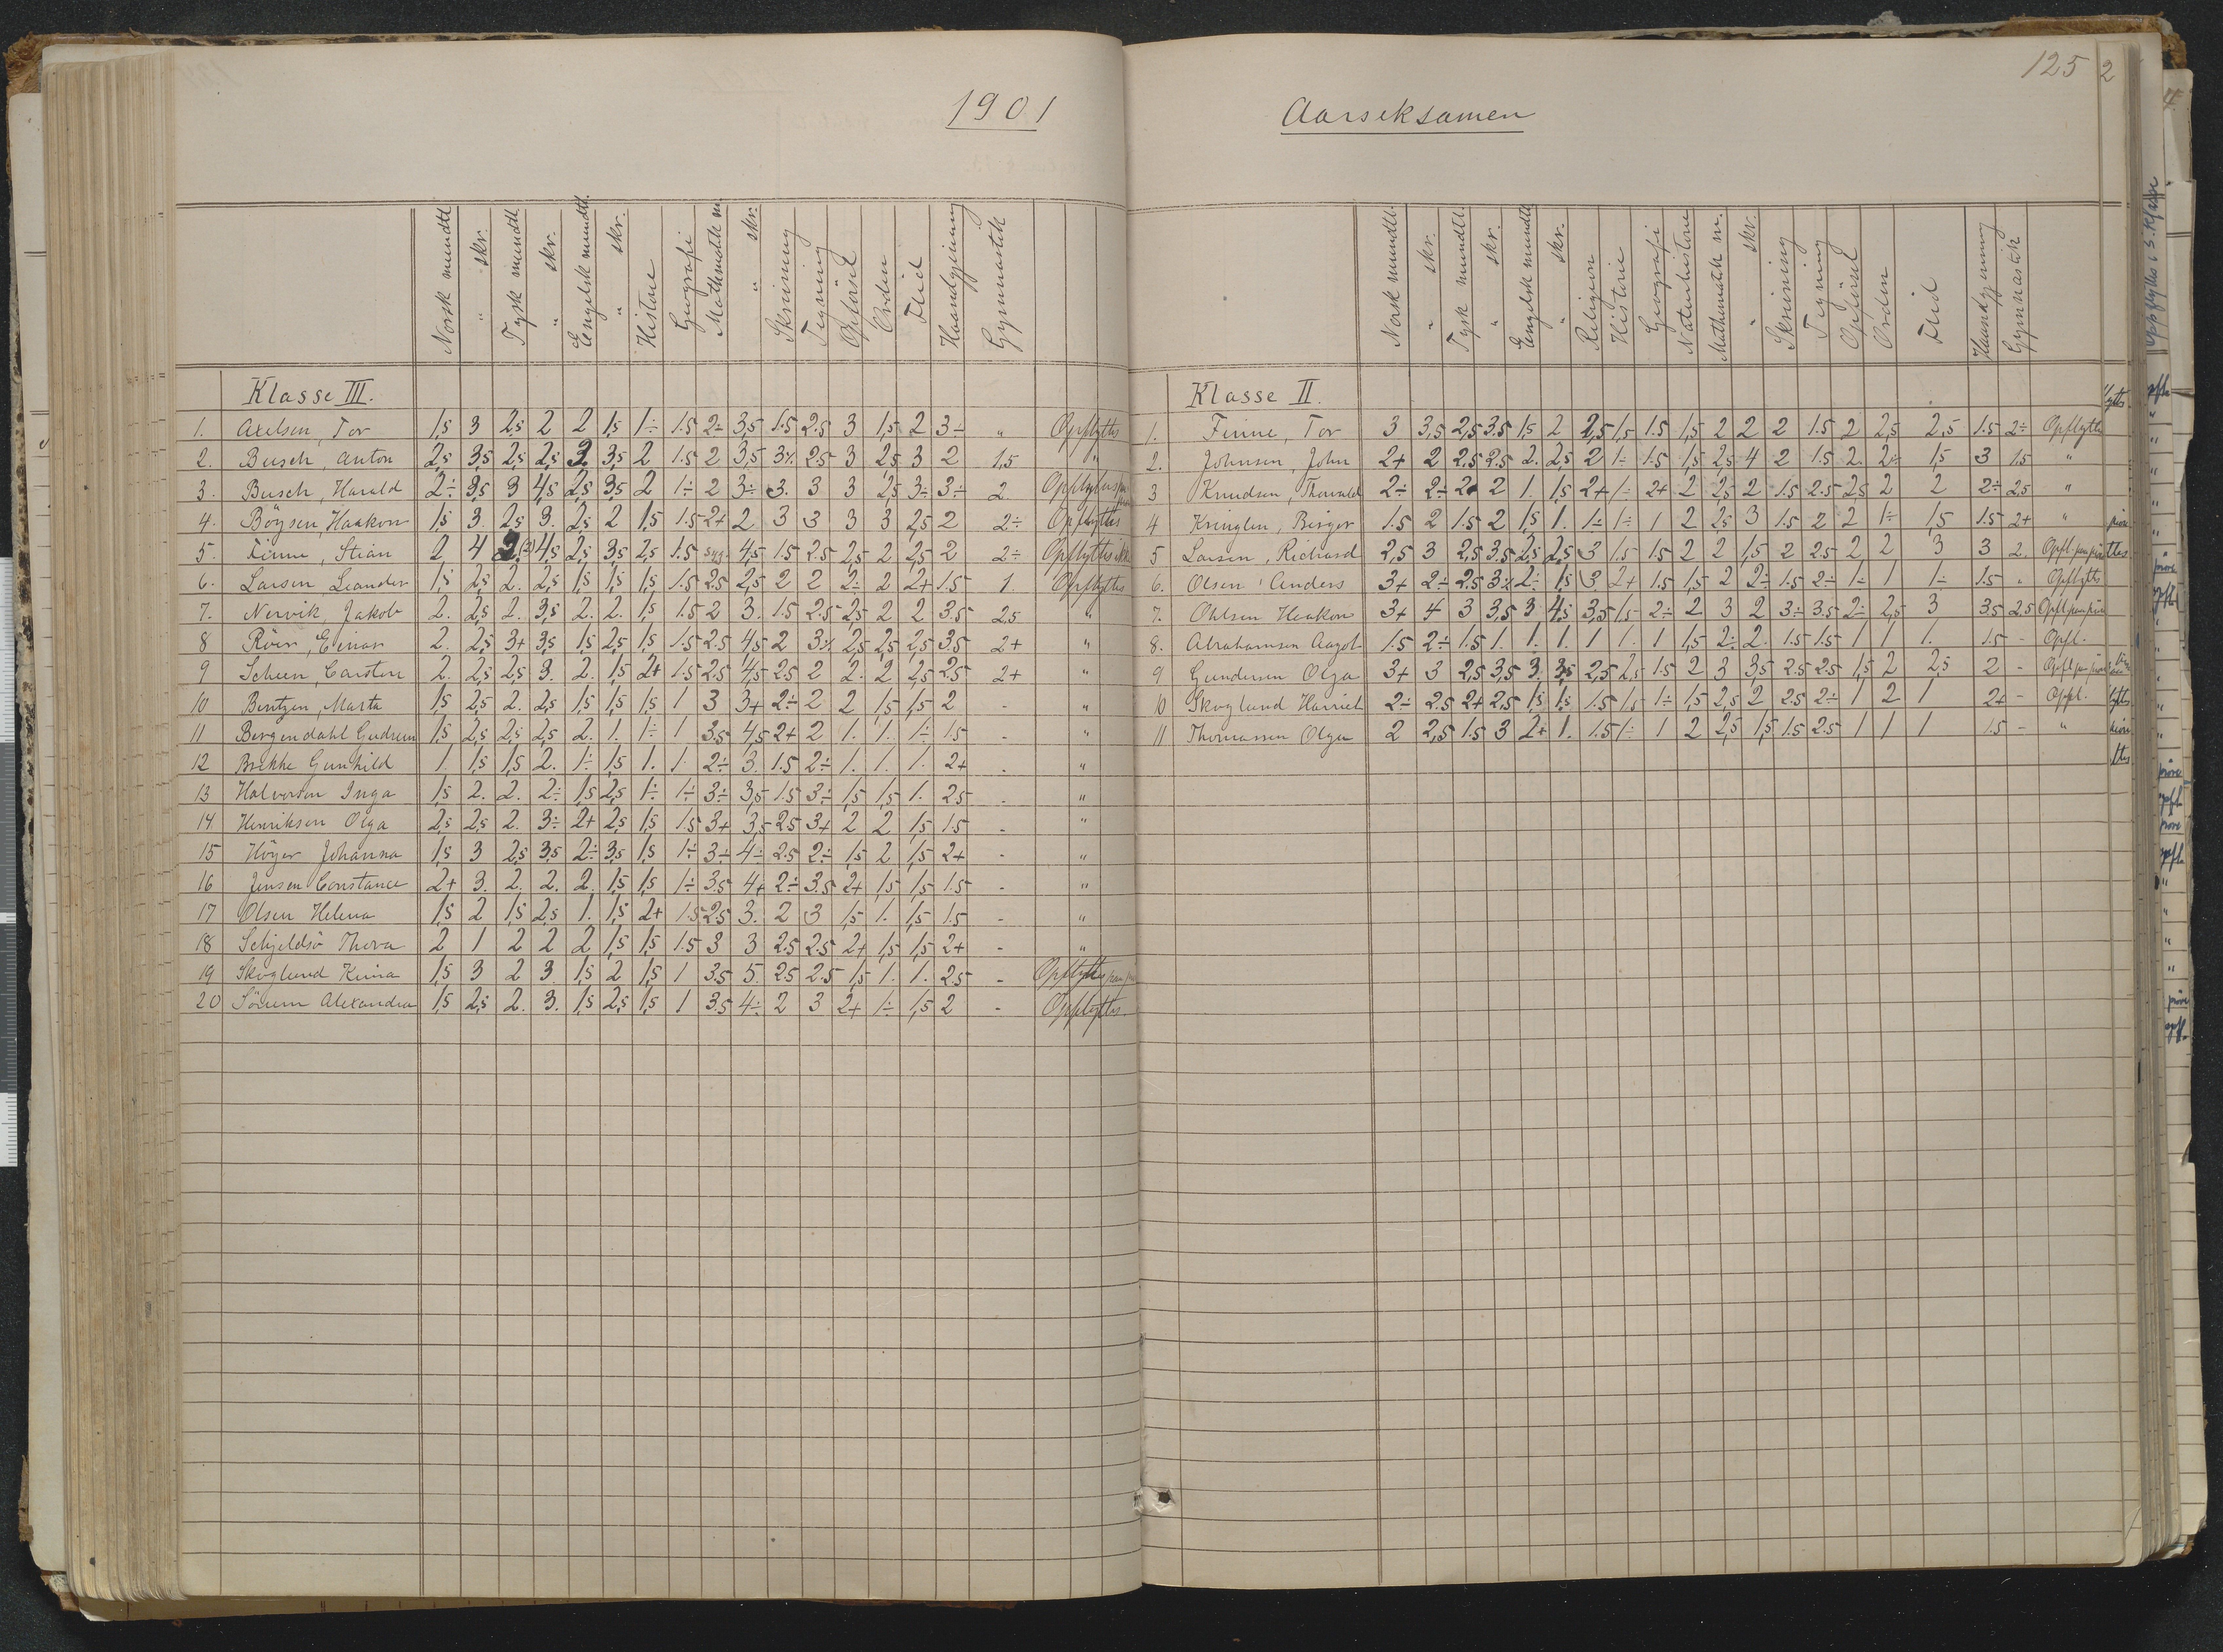 1901
Norsk mundtl. " skr. Tysk mundtl. " skr. Engelsk mundtl. " skr. Historie Geografi Mathematik m. " skr. Skrivning Tegning Opførsel Orden Flid Haandgjerning Gymnastik
Klasse III.
1. Axelsen, Tor 1,5 3 2,5 2 2 1,5 1÷ 1.5 2÷ 3,5 1.5 2.5 3 1,5 2 3÷ " Opflyttes
2. Busch, Anton 2,5 3,5 2,5 2,5 3,5 2 1.5 2 3,5 3½ 2.5 3 2,5 3 2 1,5 "
3. Busch, Harald 2÷ 3,5 3 4,5 2,5 3,5 2 1÷ 2 3÷ 3. 3 3 2,5 3÷ 3÷ 2
4. Böysen, Haakon 1,5 3. 2,5 3. 2,5 2 1,5 1.5 2+ 2 3 3 3 3 2,5 2 2÷ Opflyttes
5. Finne, Stian 2 4 (2) 4,5 2,5 3,5 2,5 1.5 syg. 4,5 1.5 2.5 2,5 2 2,5 2 2÷ Opflyttes ikke
6. Larsen Leander 1,5 2,5 2. 2,5 1,5 1,5 1,5 1.5 2.5 2,5 2 2 2÷ 2 2+ 1.5 1. Opflyttes
7. Nervik, Jakob 2. 2,5 2. 3,5 2. 2. 1,5 1.5 2 3. 1.5 2.5 2,5 2 2 3.5 2,5 "
8 Röer, Einar 2. 2,5 3+ 3,5 1,5 2,5 1,5 1.5 2.5 4,5 2 3½ 2,5 2,5 2,5 3.5 2+ "
9 Scheen, Carsten 2. 2,5 2,5 3. 2. 1,5 2+ 1.5 2.5 4,5 2.5 2 2. 2 2,5 2.5 2+ "
10 Bentzen, Marta 1,5 2,5 2. 2,5 1,5 1,5 1,5 1 3 3+ 2÷ 2 2 1,5 1,5 2 - "
11 Bergendahl Gudrun 1,5 2,5 2,5 2,5 2. 1. 1÷ 1 3.5 4,5 2+ 2 1. 1. 1÷ 1.5 - "
12 Brekke Gunhild 1. 1,5 1,5 2. 1÷ 1,5 1. 1. 2÷ 3. 1.5 2÷ 1. 1. 1. 2+ - "
13 Halvorsen Inga 1,5 2. 2. 2÷ 1,5 2,5 1÷ 1÷ 3÷ 3,5 1.5 3÷ 1,5 1,5 1. 2.5 - "
14. Henriksen Olga 2,5 2,5 2. 3÷ 2+ 2,5 1,5 1.5 3+ 3,5 2.5 3+ 2 2 1,5 1.5 - "
15 Höyer Johanna 1,5 3 2,5 3,5 2÷ 3,5 1,5 1÷ 3÷ 4÷ 2.5 2÷ 1,5 2 1,5 2+ - "
16 Jensen Constance 2+ 3. 2. 2. 2. 1,5 1,5 1÷ 3.5 4+ 2÷ 3.5 2+ 1,5 1,5 1.5 - "
17 Olsen Helena 1,5 2 1,5 2,5 1. 1,5 2+ 1.5 2.5 3. 2 3 1,5 1. 1,5 1.5 - "
18 Schjeldsö Thora 2 1 2 2 2 1,5 1,5 1.5 3 3 2.5 2.5 2+ 1,5 1,5 2+ - "
19 Skoglund 1,5 3 2 3. 1,5 2 1,5 1 3.5 5. 2.5 2.5 1,5 1. 1. 2.5 - Opflyttes
20 Sörum Alexandra 1,5 2,5 2. 3. 1,5 2,5 1,5 1 3.5 4÷ 2 3 2+ 1÷ 1,5 2 - Opflyttes.
125
2
Aarseksamen
Norsk mundtl. " skr. Tysk mundtl. " skr. Engelsk mundtl. " skr. Religion Historie Geografi Naturhistorie Mathematik m. " skr. Skrivning Tegning Opførsel Orden Flid Haandgjerning Gymnastik
Klasse II.
1. Finne, Tor 3 3,5 2,5 3.5 1,5 2 2,5 1,5 1.5 1,5 2 2 2 1.5 2 2,5 2,5 1.5 2÷ Opflyttes
2. Johnsen, John 2+ 2 2.5 2.5 2. 2,5 2 1÷ 1.5 1,5 2,5 4 2 1.5 2. 2÷ 1,5 3 1.5 "
3 Knudsen, Thorvald 2÷ 2÷ 2 2 1. 1,5 2+ 1÷ 2+ 2 2,5 2 1.5 2.5 2,5 2 2 2÷ 2,5 "
4 Kringlen, Birger 1.5 2 1.5 2 1,5 1. 1÷ 1÷ 1 2 2,5 3 1.5 2 2 1÷ 1,5 1.5 2+ "
5 Larsen, Richard 2,5 3 2,5 3.5 2,5 2,5 3 1.5 1.5 2 2 1,5 2 2.5 2 2 3 3 2. Opfl. paa prøve
6. Olsen, Anders 3+ 2÷ 2.5 3½ 2÷ 1,5 3 2+ 1.5 1,5 2 2÷ 1.5 2÷ 1÷ 1 1÷ 1.5 " Opflyttes
7. Ohlsen Haakon 3+ 4 3 3,5 3 4,5 3,5 1,5 2÷ 2 3 2 3÷ 3.5 2÷ 2,5 3 3.5 2.5 Opfl. paa prøve
8. Abrahamsen Aagot 1.5 2÷ 1.5 1. 1. 1. 1 1. 1 1,5 2÷ 2. 1.5 1.5 1 1 1. 1.5 - Opfl.
9 Gundersen Olga 3+ 3 2,5 3,5 3. 3,5 2,5 2,5 1.5 2 3 3,5 2.5 2.5 1,5 2 2,5 2 - Opfl. paa prøve
10 Skoglund Harriet 2÷ 2.5 2+ 2,5 1,5 1,5 1.5 1,5 1÷ 1,5 2,5 2 2.5 2÷ 1 2 1 2+ - Oppl.
11 Thomassen Olga 2 2,5 1.5 3 2+ 1. 1.5 1÷ 1 2 2,5 1,5 1.5 2.5 1 1 1 1.5 - "